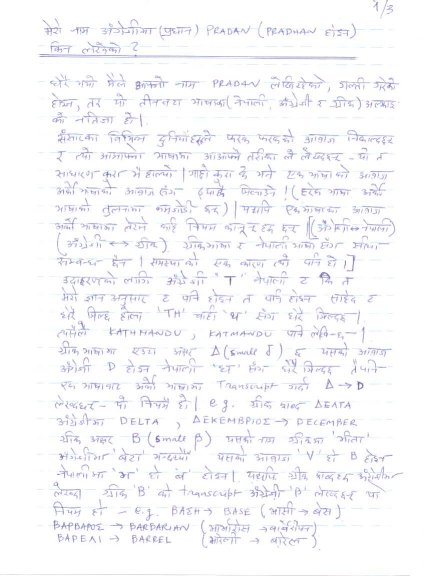 1/3
मेरो नाम अंग्रेजीमा (प्रधान) PRADAN (PRADHAN होइन)
किन लेखेको ?
धेरै भयो मैले आफ्नो नाम PRADAN लेखिरहेको, गल्ती गरेको
होइन, तर यो तीनवटा भाषाको (नेपाली, अंग्रेजी र ग्रीक)
को नतिजा हो।
संसारका विभिन्न फरक फरकको आवाज निकाल्दछन्
र त्यो आआफ्नो भाषामा आआफ्नै तरीका ले लेख्दछन् - यो त
साधारण कुरा मै हाल्यो। गाह्रो कुरा के भने एक भाषाको आवाज
अर्को भाषाको आवाज संग (हरेक भाषा अर्को
भाषाको तुलनामा कमजोरी हुन्छ)। यद्यपि एक भाषाका आवाज
अर्को भाषामा लेख्ने केहि नियम कानून हुन्छ। [(अंग्रेजी↔नेपाली)
(अंग्रेजी ↔ ग्रीक) ग्रीकभाषा र नेपाली भाषा संग सीधा
सम्बन्ध छैन। समस्याको एक कारण त्यो पनि हो।]
उदाहरणको लागि अंग्रेजी "T" नेपाली ट कि त
मेरो ज्ञान अनुसार ट पनि होइन त पनि होइन ट
धेरै मिल्छ होला 'TH' चाहीं 'थ' संग धेरै मिल्दछ।
त्यसैले KATHMANDU, KATMANDU पनि लेखिन्छ।
ग्रीक भाषामा एउटा अक्षर Δ (small δ) छ यसको आवाज
अंग्रेजी D होइन नेपाली "द" संग धेरै मिल्दछ तैपनि
एक भाषाबाट अर्को भाषामा Transcript गर्दा Δ → D
लेख्दछन् - यो नियमै हो। e.g. ग्रीक शब्द ΔΕΛΤΑ
अंग्रेजीमा DELTA, ΔΕΚΕΜΒΡΙΟΣ → DECEMBER
ग्रीक अक्षर B (small β) यसको नाम ग्रीकमा 'भीता'
अंग्रेजीमा 'बेटा' भन्दछन् यसको आवाज 'V' हो B होइन
नेपालीमा 'भ' हो 'ब' होइन। यद्यपि ग्रीक शब्दहरू अंग्रेजीमा
लेख्दा ग्रीक 'B' को transcript अंग्रेजी 'B' लेख्दछन् यो
नियम हो - e.g. ΒΑΣΗ → BASE (भासी → बेस)
ΒΑΡΒΑΡΟΣ → BARBARIAN (भारभारोस → बार्बेरियन)
ΒΑΡΕΛΙ → BARREL (भारेली → बारेल)